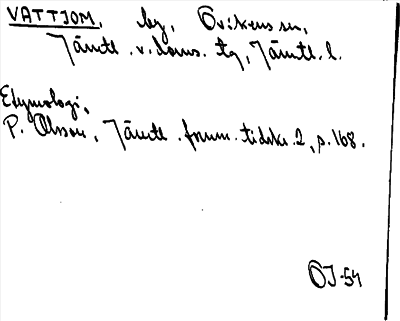 VATTJOM, by, Ovikens sn,
Jämtl. v. doms. tg, Jämtl. l.
Etymologi,
P. Olsson, Jämtl. fornm. tidskr. 2, s. 168.
OJ-54